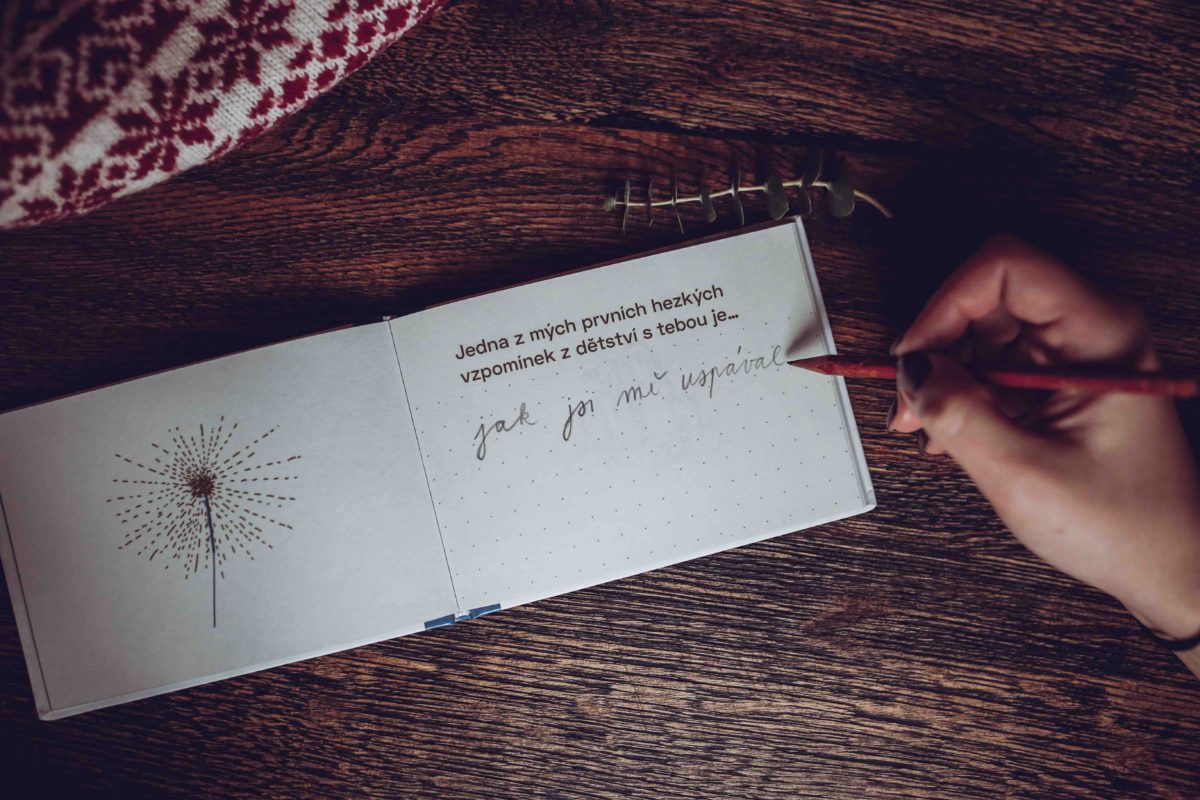 Jedna z mých prvních hezkých
vzpomínek z dětství s tebou je...
jak jsi mě uspával